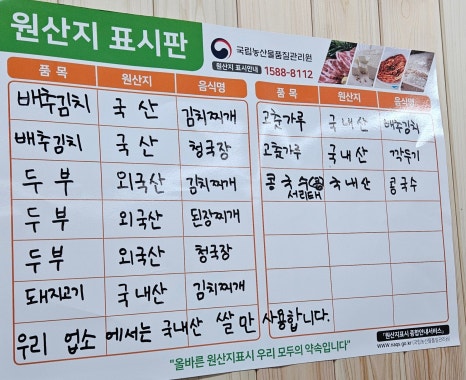 원산지 표시판
국립농산물품질관리원
원산지 표시안내 1588-8112
품 목 원산지 음식명
배추김치 국 산 김치찌개
배추김치 국 산 청국장
두 부 외국산 김치찌개
두 부 외국산 된장찌개
두 부 외국산 청국장
돼지고기 국내산 김치찌개
품 목 원산지 음식명
고춧가루 국내산 배추김치
고춧가루 국내산 깍두기
콩국수(콩) 국내산 콩국수
서리태
우리 업소 에서는 국내산 쌀 만 사용합니다.
"올바른 원산지표시 우리 모두의 약속입니다"
『원산지표시 종합안내서비스』
www.naqs.go.kr 국립농산물품질관리원